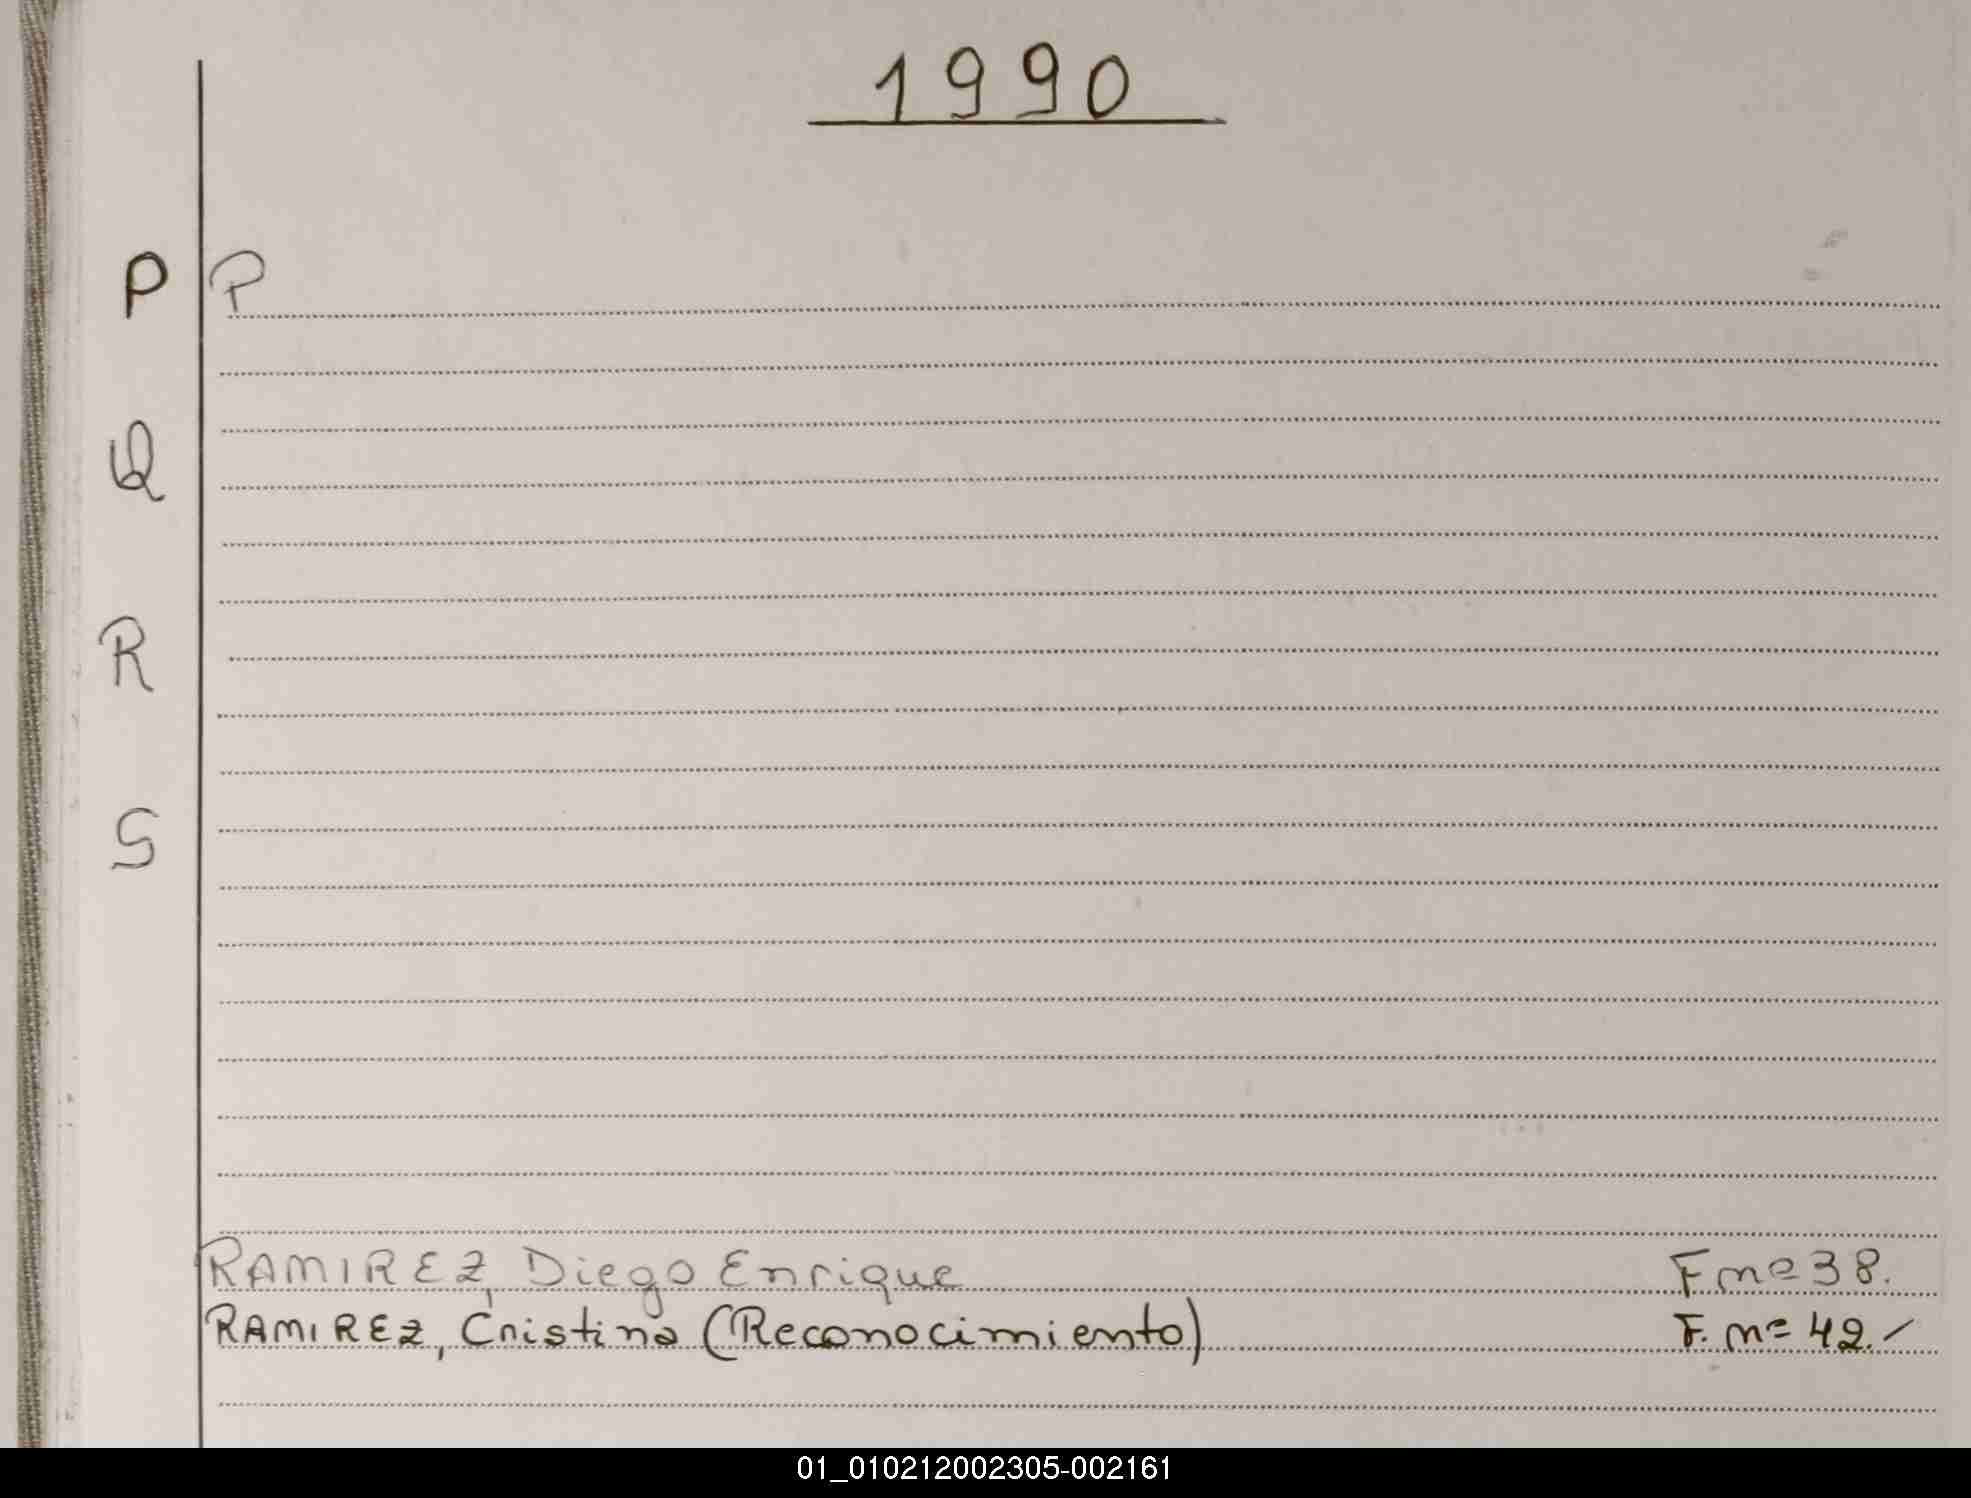 1990
P P
Q
R
S
RAMIREZ, Diego Enrique F nº 38.
RAMIREZ, Cristina (Reconocimiento) F. nº 42.
01_010212002305-002161